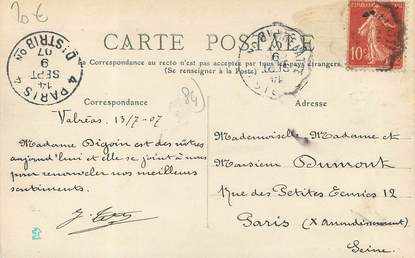 20€
CARTE POSTALE
La Correspondance au recto n'est pas acceptée par tous les pays étrangers.
(Se renseigner à la Poste)
PARIS
DISTRIBON
14
SEPT
9
07
10
Correspondance
84)
Adresse
Valréas 13/7-07
Madame Digoin est des nôtres
aujourd'hui et elle se joint à nous
pour renouveler nos meilleurs
sentiments.
Mademoiselle, Madame et
Monsieur Dumont
17 rue des Petites Ecuries 12
Paris (X arrondissement)
Seine.